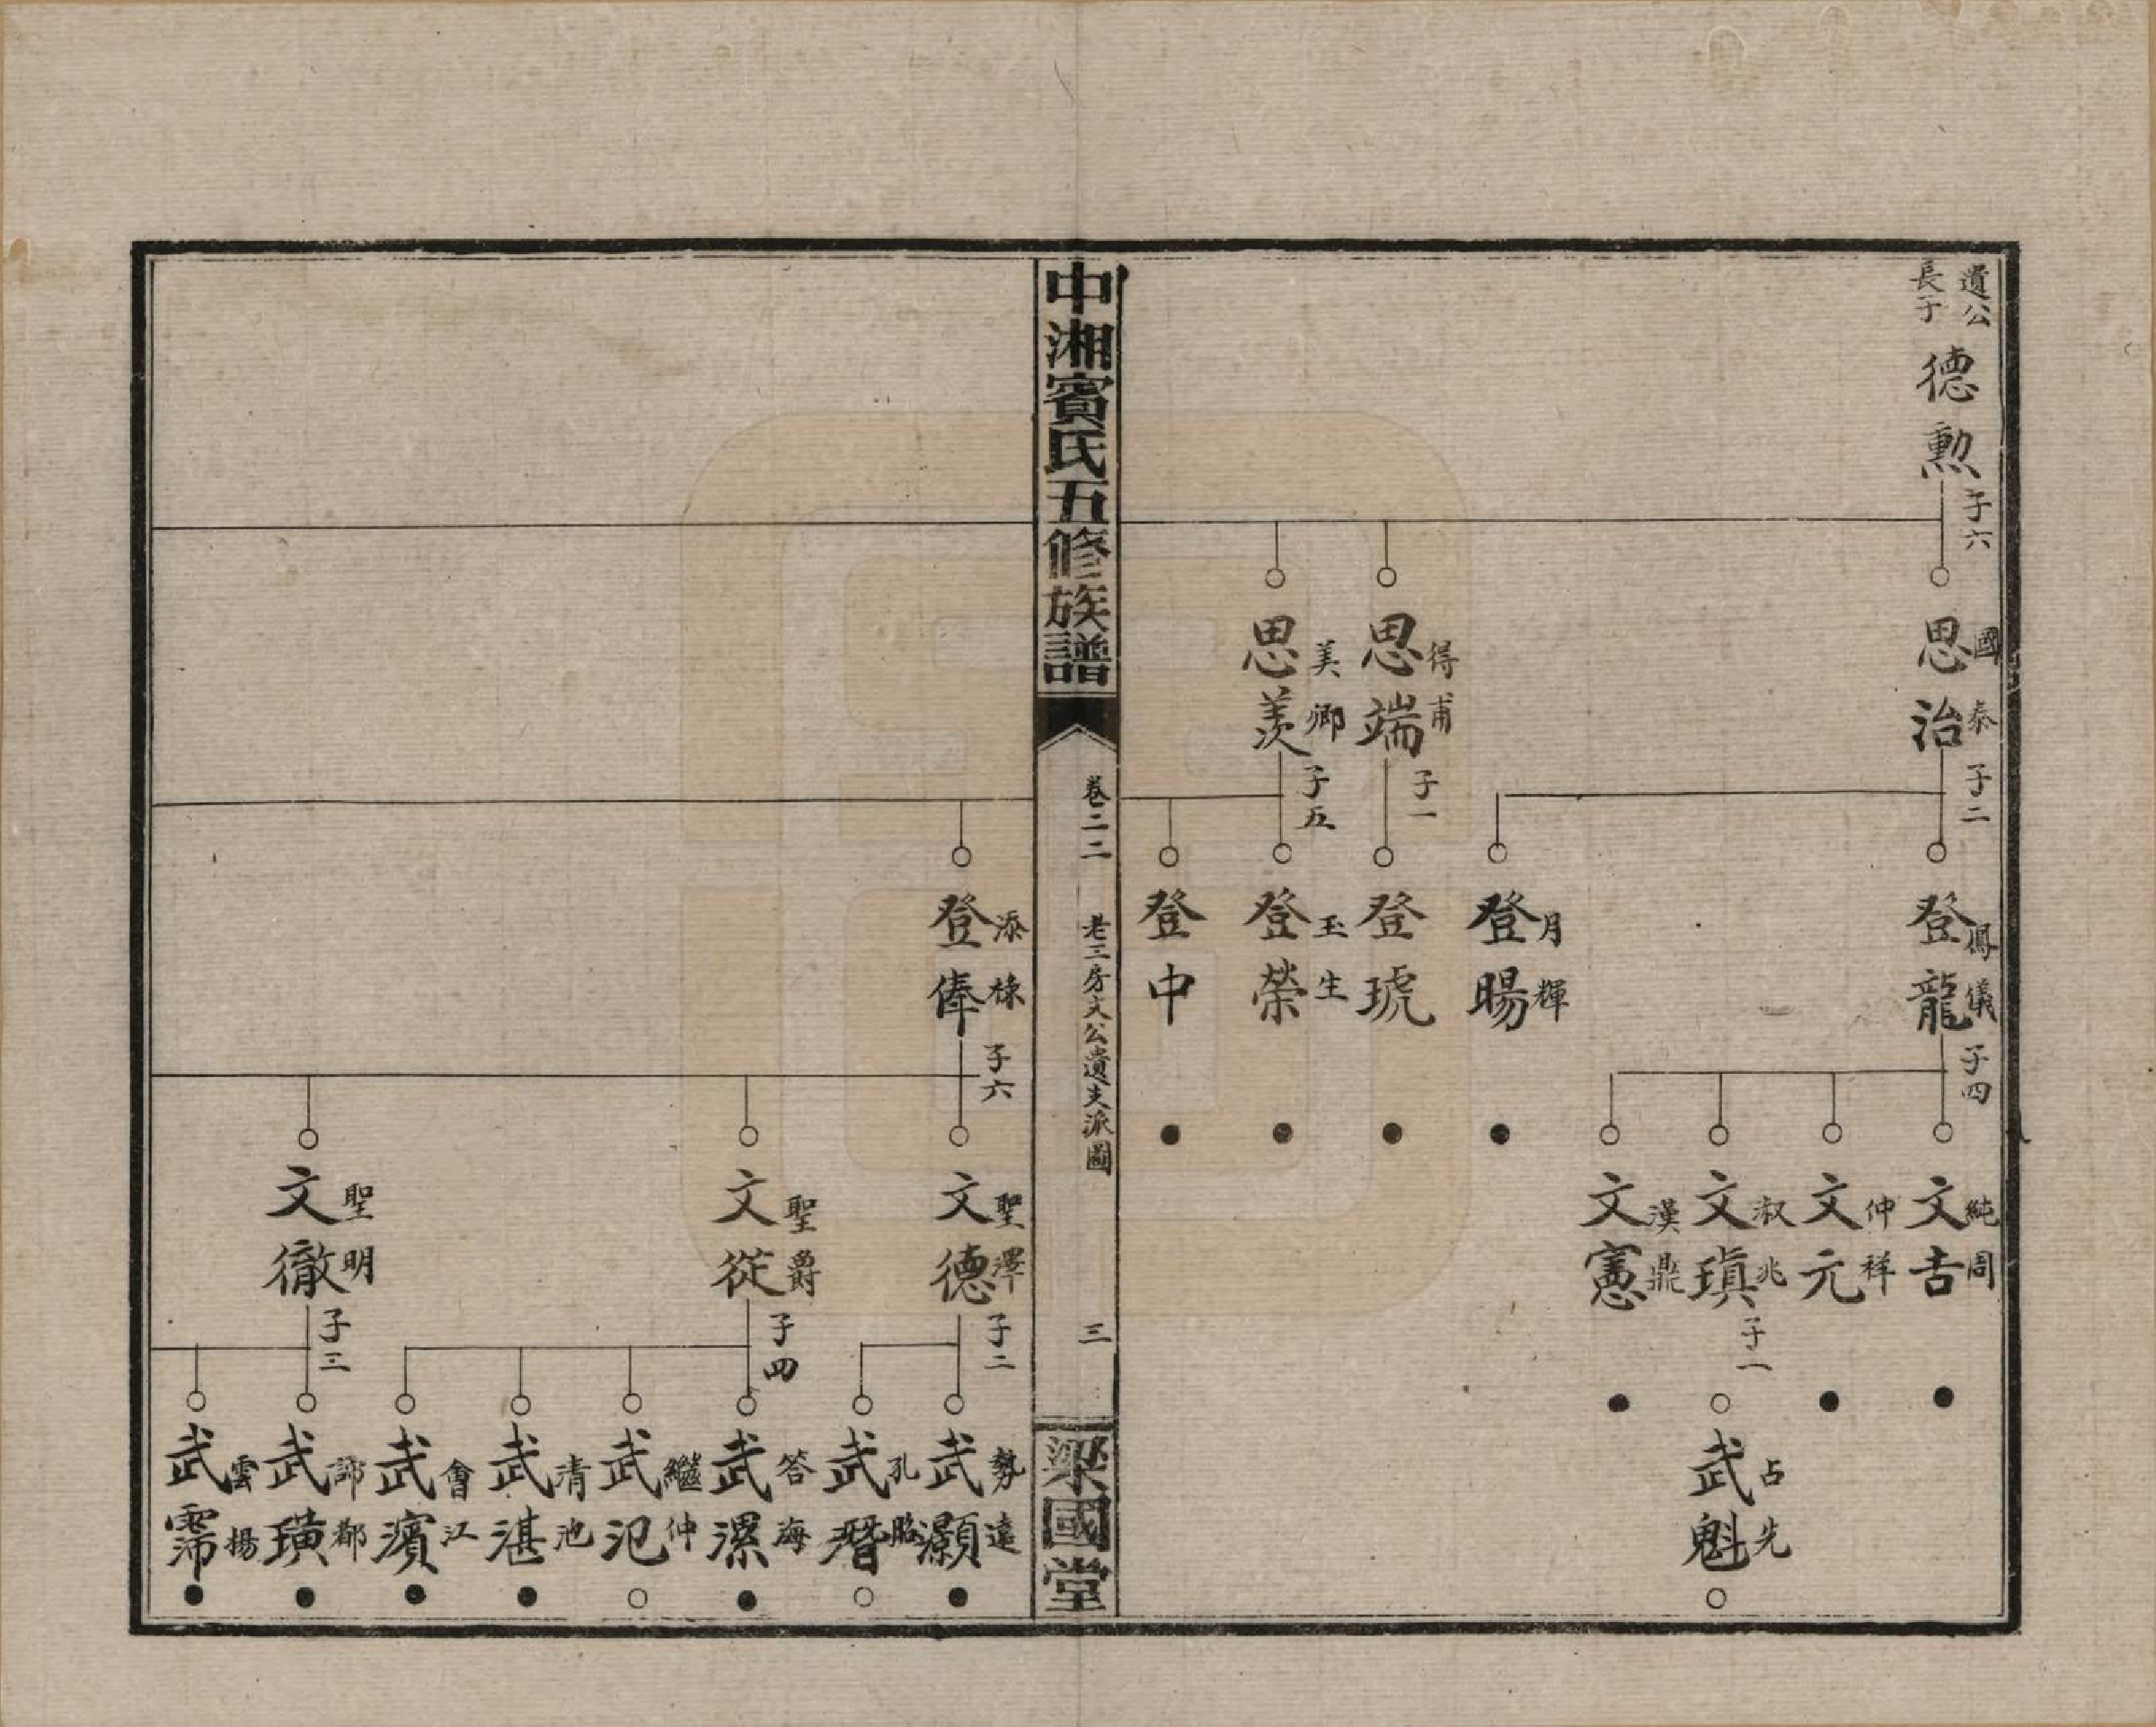 遺公
長子
德勲
子六
國泰
思治
子二
得甫
思端
子一
美卿
思羨
子五
鳳儀
登龍
子四
月輝
登暘
登琥
玉生
登榮
登中
純周
文吉
仲祥
文元
淑兆
文瑱
子一
漢鼎
文憲
占先
武魁
中湘賓氏五修族譜
卷二二
老三房文公遺支派圖
三
梁國堂
添祿
登俸
子六
聖澤
文德
子二
聖爵
文從
子四
聖明
文徹
子三
勢遠
武灝
孔
武
答海
武漯
繼仲
武氾
清池
武湛
會江
武濱
武璜
雲揚
武霈